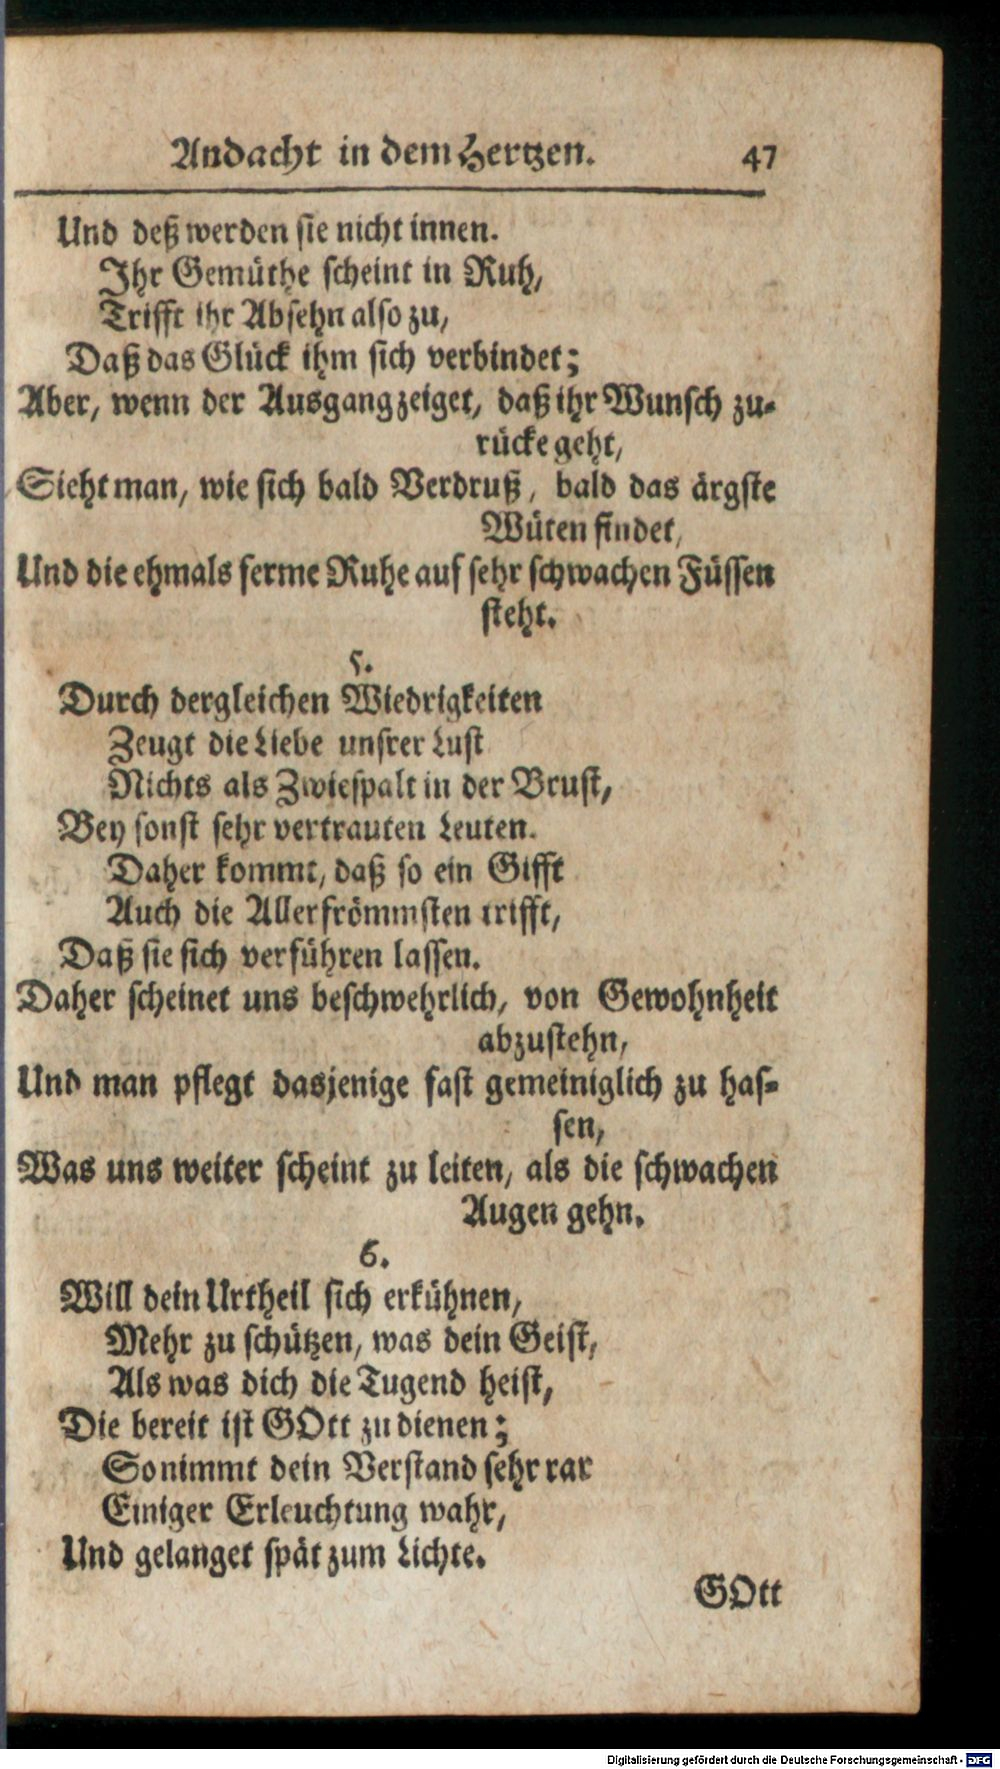 Andacht in dem Hertzen. 47
Und deß werden sie nicht innen.
Ihr Gemüthe scheint in Ruh,
Trifft ihr Absehn also zu,
Daß das Glück ihm sich verbindet;
Aber, wenn der Ausgang zeiget, daß ihr Wunsch zu-
rücke geht,
Sieht man, wie sich bald Verdruß, bald das ärgste
Wüten findet,
Und die ehmals ferme Ruhe auf sehr schwachen Füssen
steht.
5.
Durch dergleichen Wiedrigkeiten
Zeugt die Liebe unsrer Lust
Nichts als Zwiespalt in der Brust,
Bey sonst sehr vertrauten Leuten.
Daher kommt, daß so ein Gifft
Auch die Allerfrömmsten trifft,
Daß sie sich verführen lassen.
Daher scheinet uns beschwehrlich, von Gewohnheit
abzustehn,
Und man pflegt dasjenige fast gemeiniglich zu has-
sen,
Was uns weiter scheint zu leiten, als die schwachen
Augen gehn.
6.
Will dein Urtheil sich erkühnen,
Mehr zu schützen, was dein Geist,
Als was dich die Tugend heist,
Die bereit ist GOtt zu dienen;
So nimmt dein Verstand sehr rar
Einiger Erleuchtung wahr,
Und gelanget spät zum Lichte.
GOtt
Digitalisierung gefördert durch die Deutsche Forschungsgemeinschaft - DFG